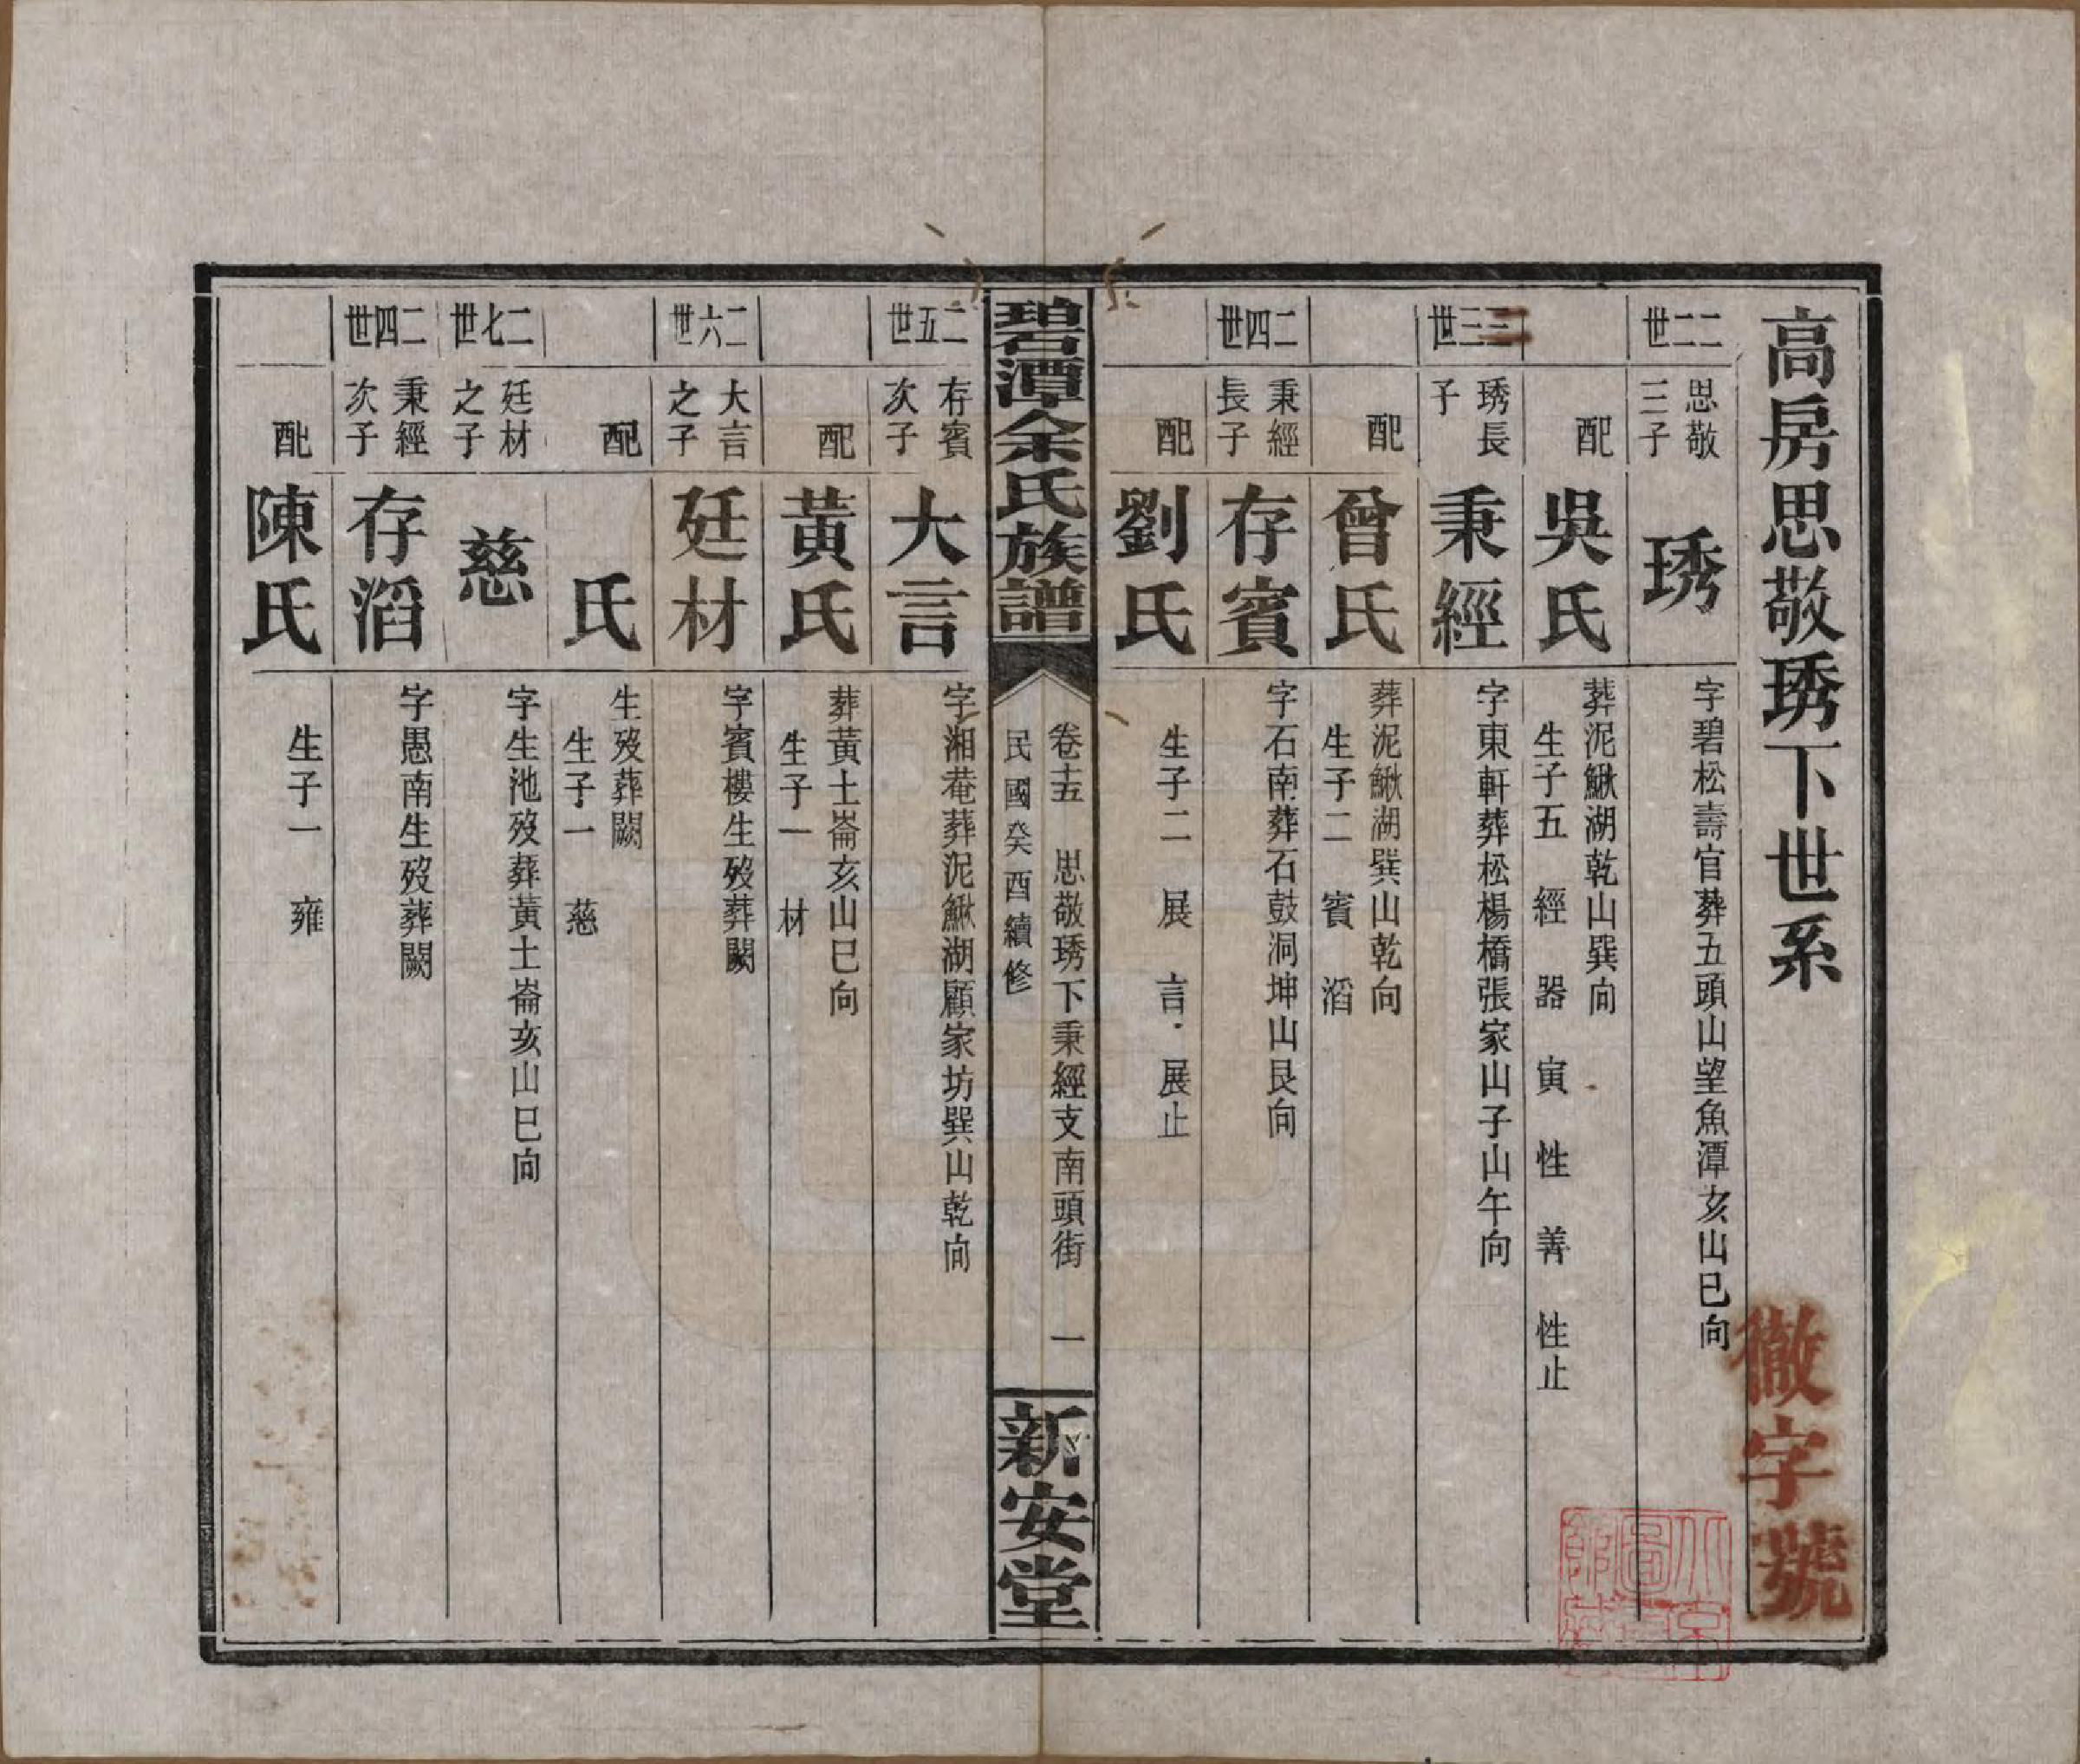 高房思敬琇下世系
徹字號
二二世
思敬三子
琇
字碧松壽官葬五頭山望魚潭亥山巳向
配
吳氏
葬泥鰍湖乾山巽向
生子五 經 器 寅 性 善 性止
二三世
琇長子
秉經
字東軒葬松楊橋張家山子山午向
配
曾氏
葬泥鰍湖巽山乾向
生子二 賓 滔
二四世
秉經長子
存賓
字石南葬石鼓洞坤山艮向
配
劉氏
生子二 展 言 展止
碧潭余氏族譜
卷十五 思敬琇下秉經支南頭街 一
民國癸酉續修
新安堂
二五世
存賓次子
大言
字湘菴葬泥鰍湖顧家坊巽山乾向
配
黃氏
葬黃土崙亥山巳向
生子一 材
二六世
大言之子
廷材
字賓樓生歿葬闕
配
氏
生歿葬闕
生子一 慈
二七世
廷材之子
慈
字生池歿葬黃土崙亥山巳向
二四世
秉經次子
存滔
字愚南生歿葬闕
配
陳氏
生子一 雍